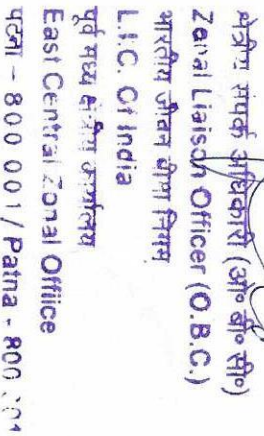 क्षेत्रीय संपर्क अधिकारी (ओ० बी० सी०)
Zonal Liaison Officer (O.B.C.)
भारतीय जीवन बीमा निगम
L.I.C. Of India
पूर्व मध्य क्षेत्रीय कार्यालय
East Central Zonal Offiice
पटना - 800 001 / Patna - 800 001